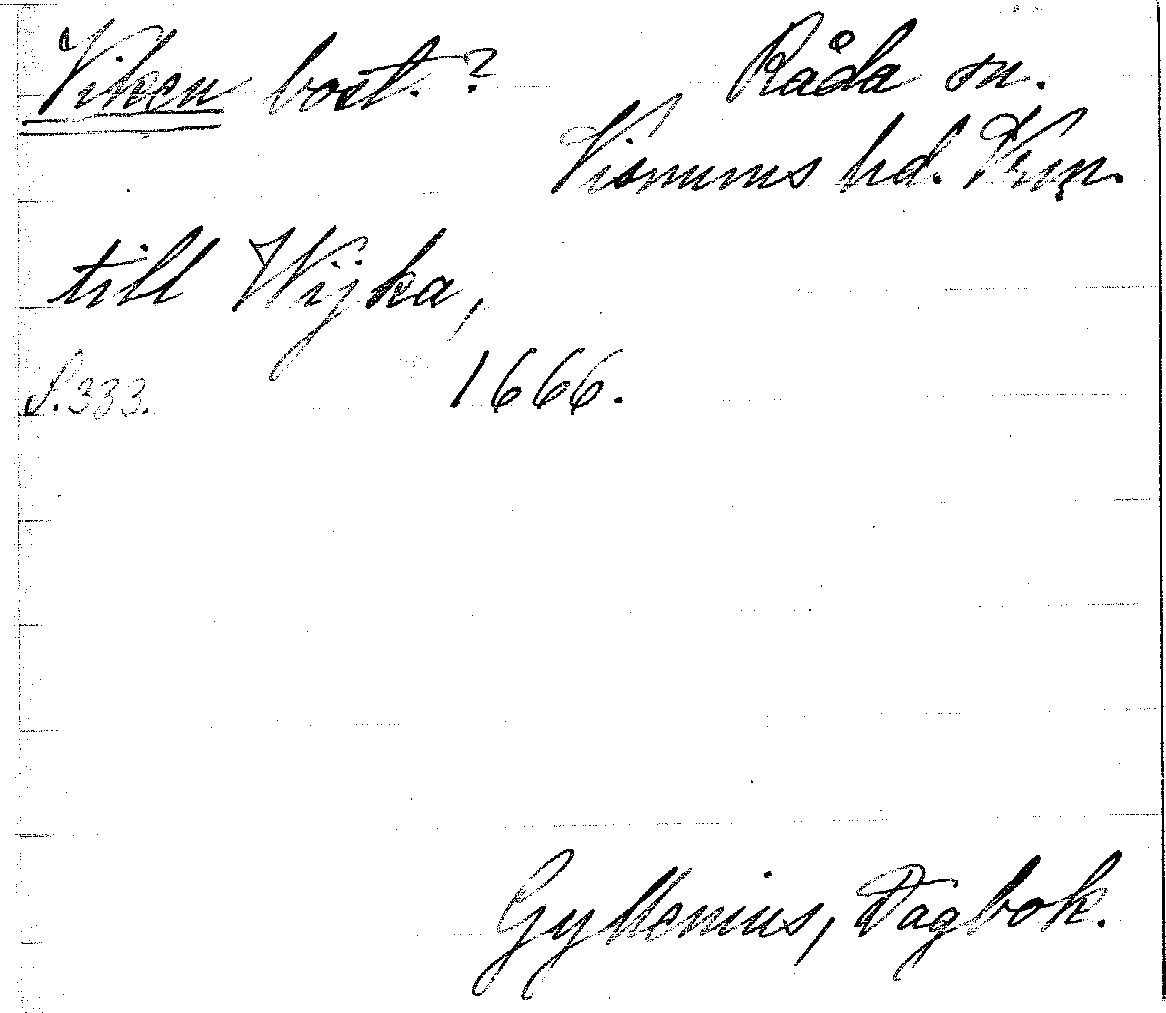 Viken bost.? Råda sn.
Visnums hd. Vrm.
till Wijka,
S. 333. 1666.
Gyllenius, Dagbok.